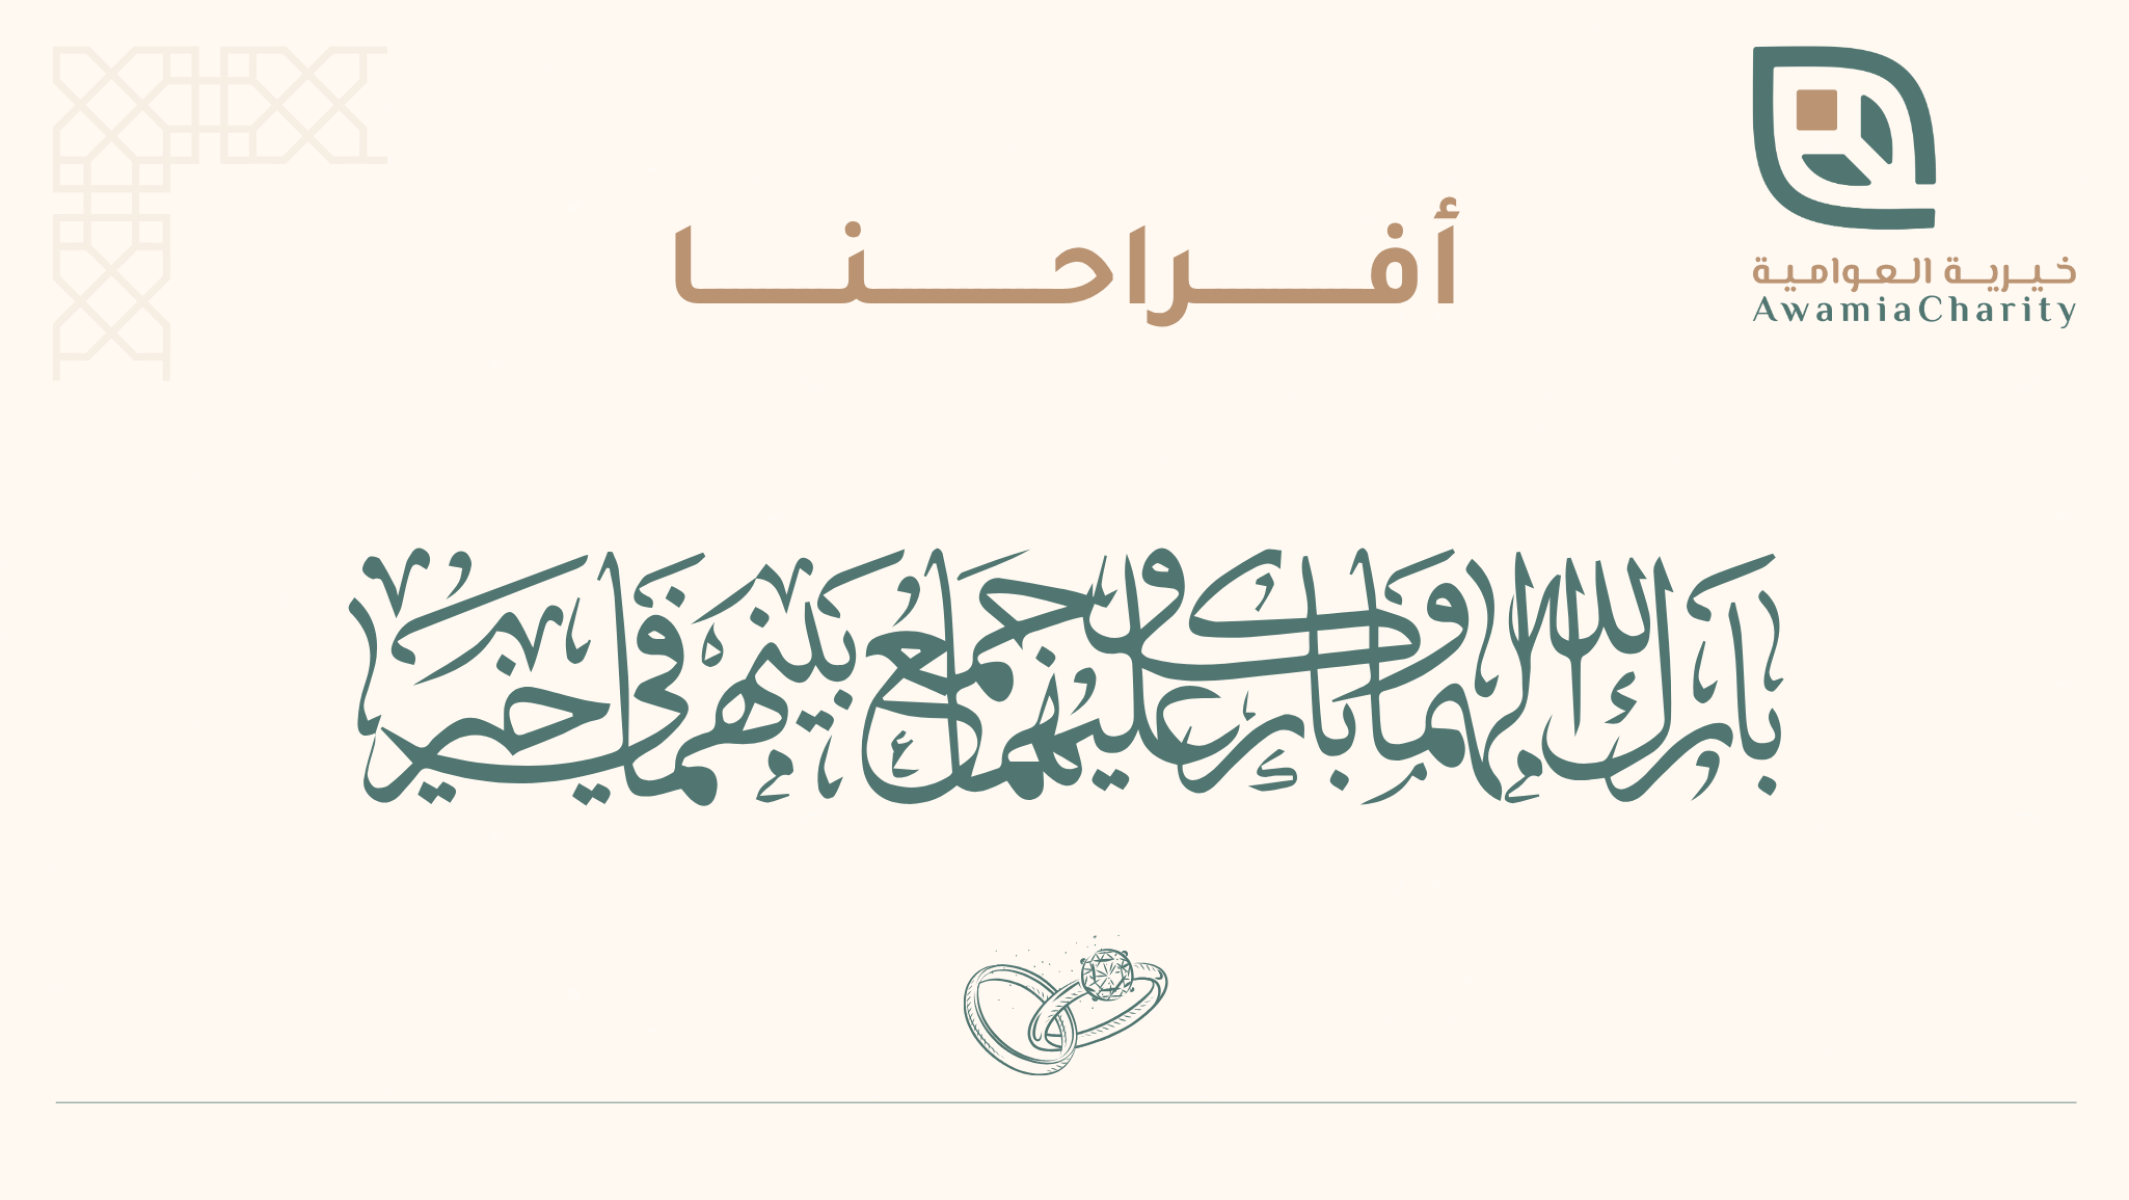 خيرية العوامية
AwamiaCharity
أفراحنا
بارك الله لهما وبارك عليهما وجمع بينهما في خير